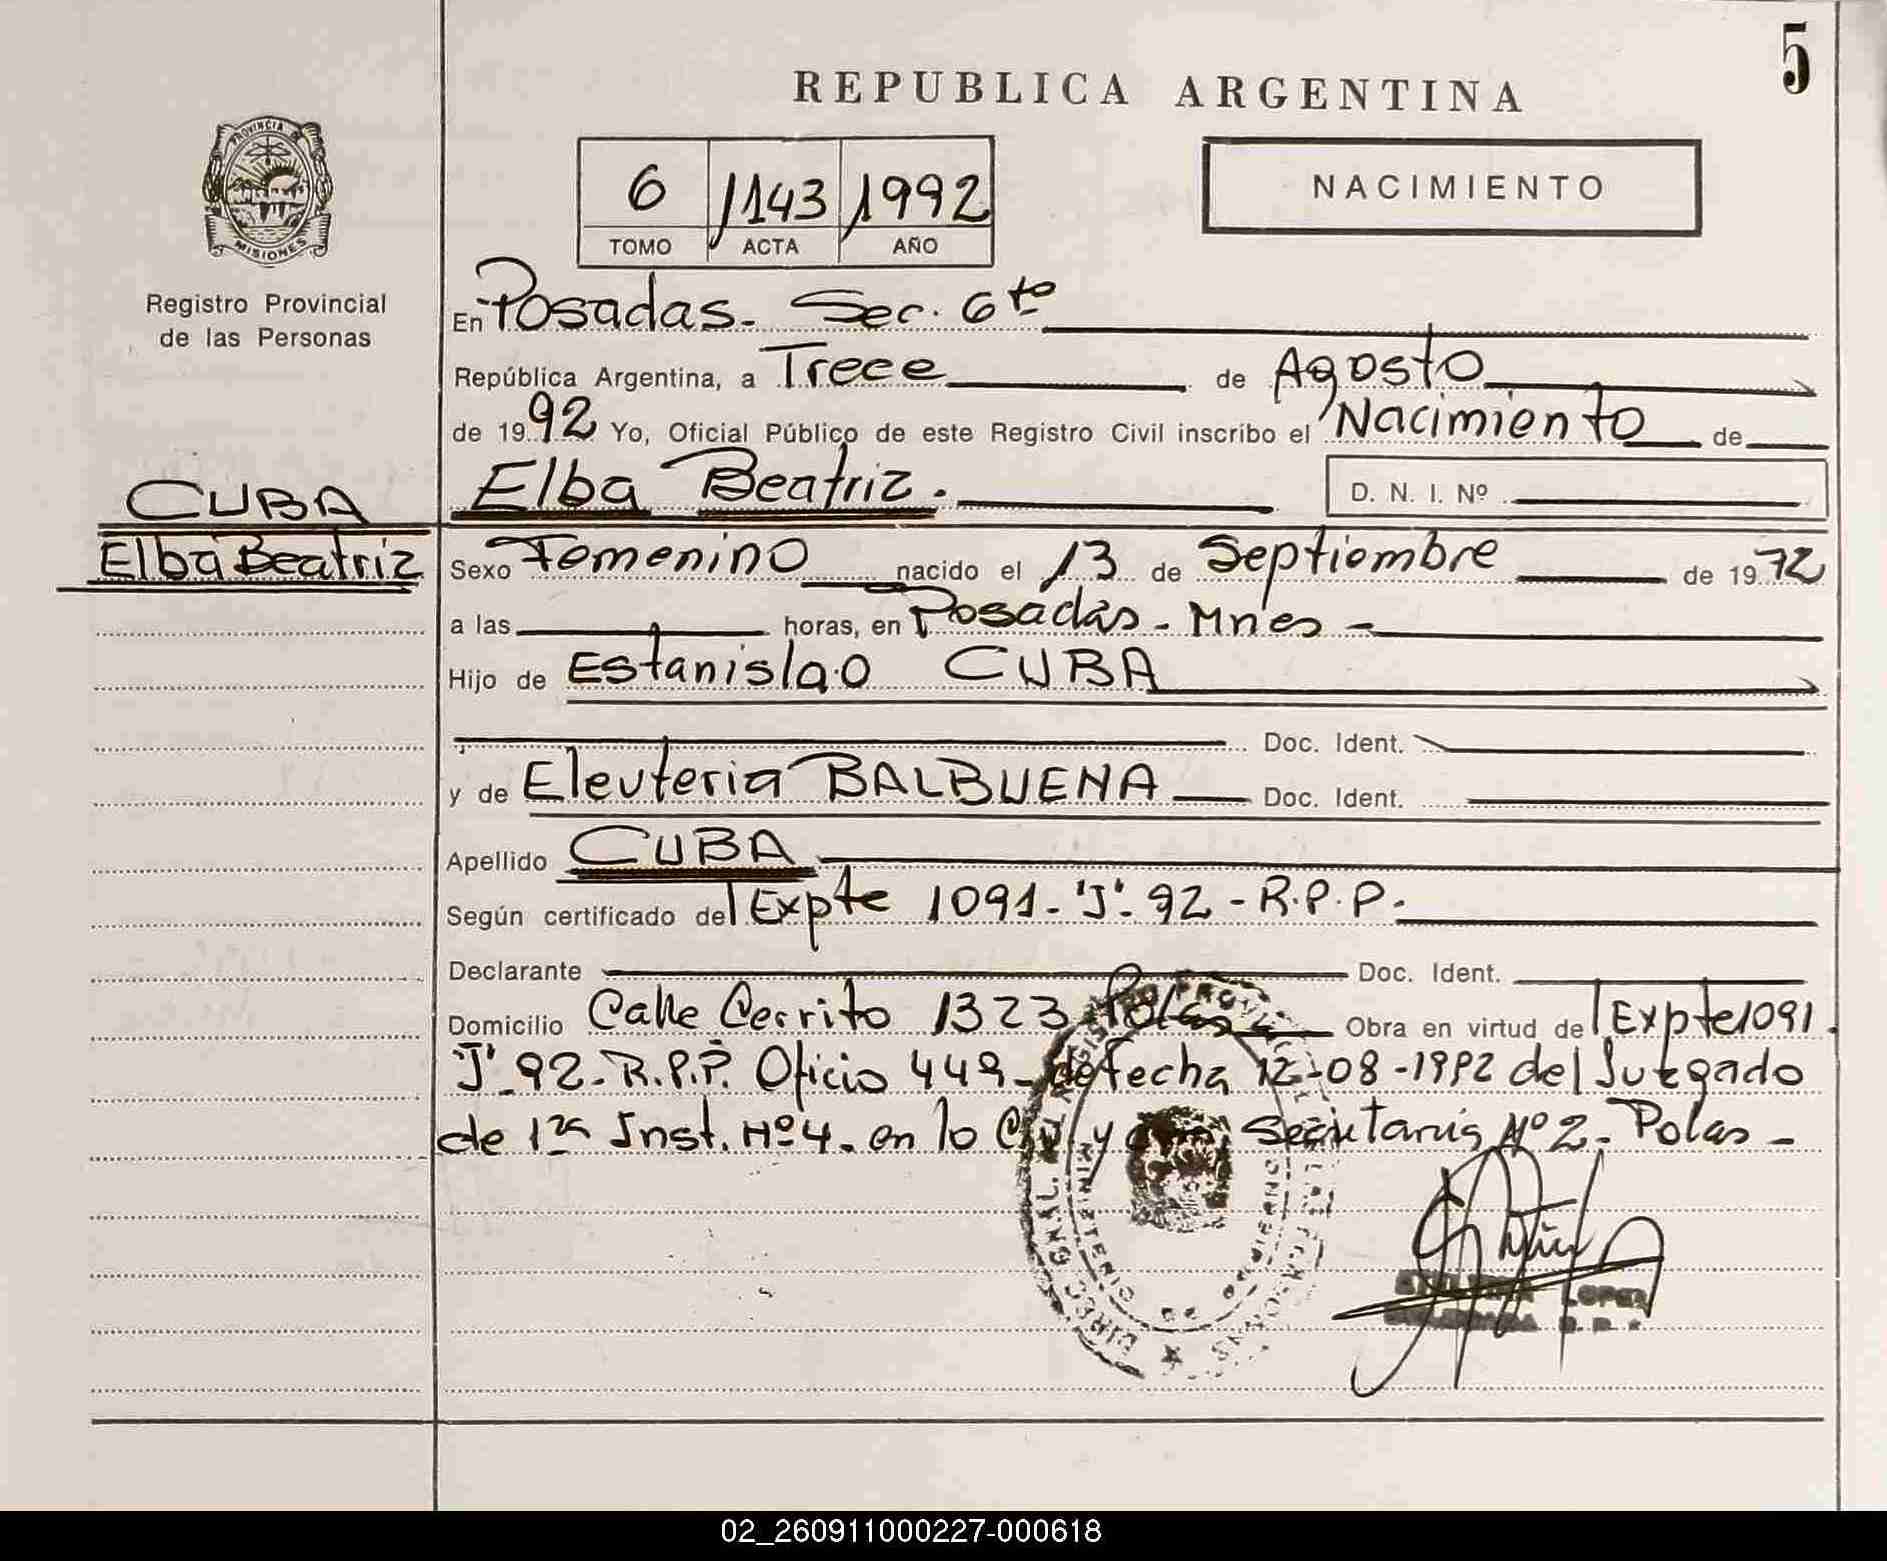 5
REPUBLICA ARGENTINA
PROVINCIA DE
MISIONES
6 1143 1992
TOMO ACTA AÑO
NACIMIENTO
Registro Provincial
de las Personas
En Posadas - Sec. 6to
República Argentina, a Trece de Agosto
de 1992 Yo, Oficial Público de este Registro Civil inscribo el Nacimiento de
Elba Beatriz. D. N. I. Nº
CUBA
Elba Beatriz
Sexo Femenino nacido el 13 de Septiembre de 1972
a las horas, en Posadas - Mnes -
Hijo de Estanislao CUBA
Doc. Ident.
y de Eleuteria BALBUENA Doc. Ident.
Apellido CUBA
Según certificado del Expte 1091-"J"-92-R.P.P.
Declarante Doc. Ident.
Domicilio Calle Cerrito 1323 Pdas Obra en virtud del Expte 1091.
"J"-92-R.P.P. Oficio 449- de fecha 12-08-1992 del Juzgado
de 1ra Inst. Nº 4. en lo Civil y Secretaria Nº 2. Pdas -
DIREC. GNAL. DEL REGISTRO PROVINCIAL DE LAS PERSONAS
MINISTERIO DE GOBIERNO
LOPEZ
02_260911000227-000618